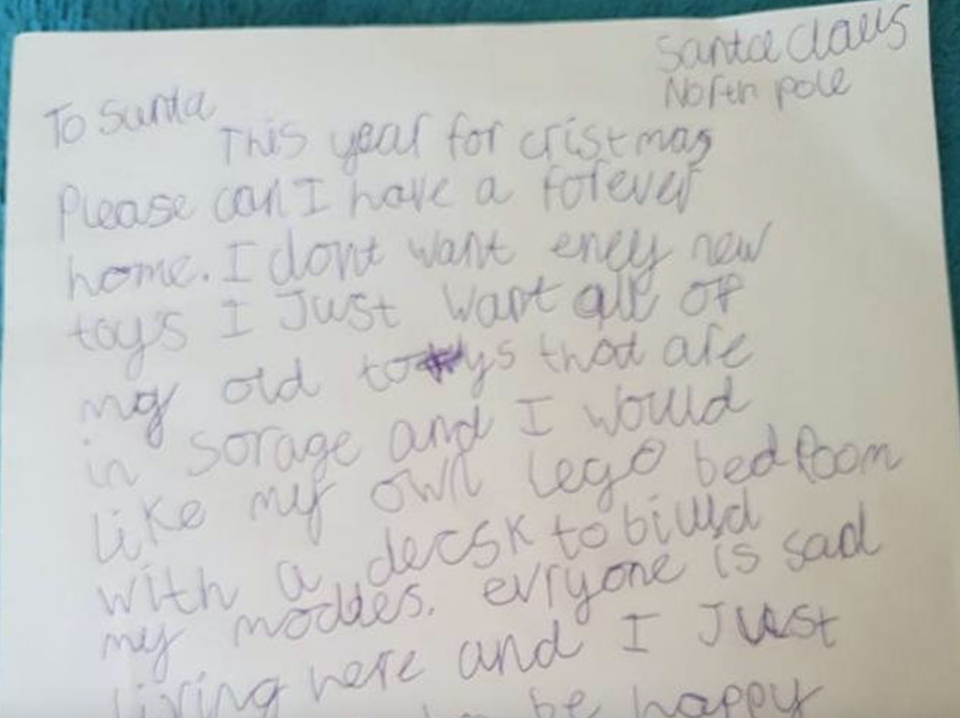 Santa Claus
North pole
To Santa
This year for cristmas
Please can I have a forever
home. I dont want eney new
toys I Just want all of
my old toys that are
in sorage and I would
like my own lego bedroom
with a decsk to biulld
my moddes. evryone is sad
living here and I Just
be happy